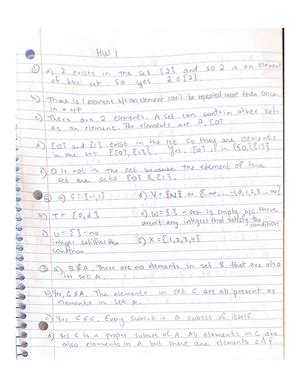 HW 1
① a) 2 exists in the set {2} and so 2 is an element
of the set so yes 2 ∈ {2}.
b) There is 1 element b/c an element can't be repeated more than once
in a set.
c) There are 2 elements. A set can contain other sets
as an element. The elements are 0, {0}
d) {0} and {1} exist in the set so they are elements
in the set {{0}, {1}}. Yes, {0} is in {{0}, {1}}
e) 0 is not in the set because the element of the
set are sets {0} & {1}
② a) S = {-1, 1}
b) T = {0, 2}
c) U = { } - no
integer satisfies the
condition
d) V = {ℕ} or
e) W = { } - set is empty b/c there
arent any integers that satisfy the
condition
f) X = {1, 2, 3, 4}
③ a) There are no elements in set B that are also
in set A.
b) Yes, C ⊆ A. The elements in set C are all present as
elements in set A.
c) Yes, C ⊆ C. Every subset is a subset of itself
d) Yes C is a proper subset of A. All elements in C are
also elements in A but there are elements